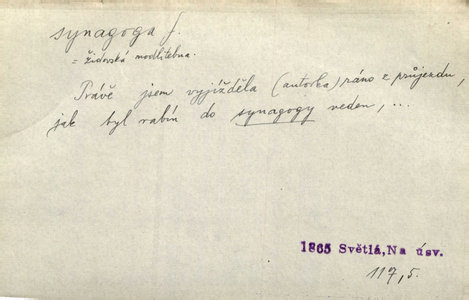 synagoga f.
= židovská modlitebna.
Právě jsem vyjížděla (autorka) ráno z průjezdu,
jak byl rabín do synagogy veden, ...
1865 Světlá, Na úsv.
117,5.